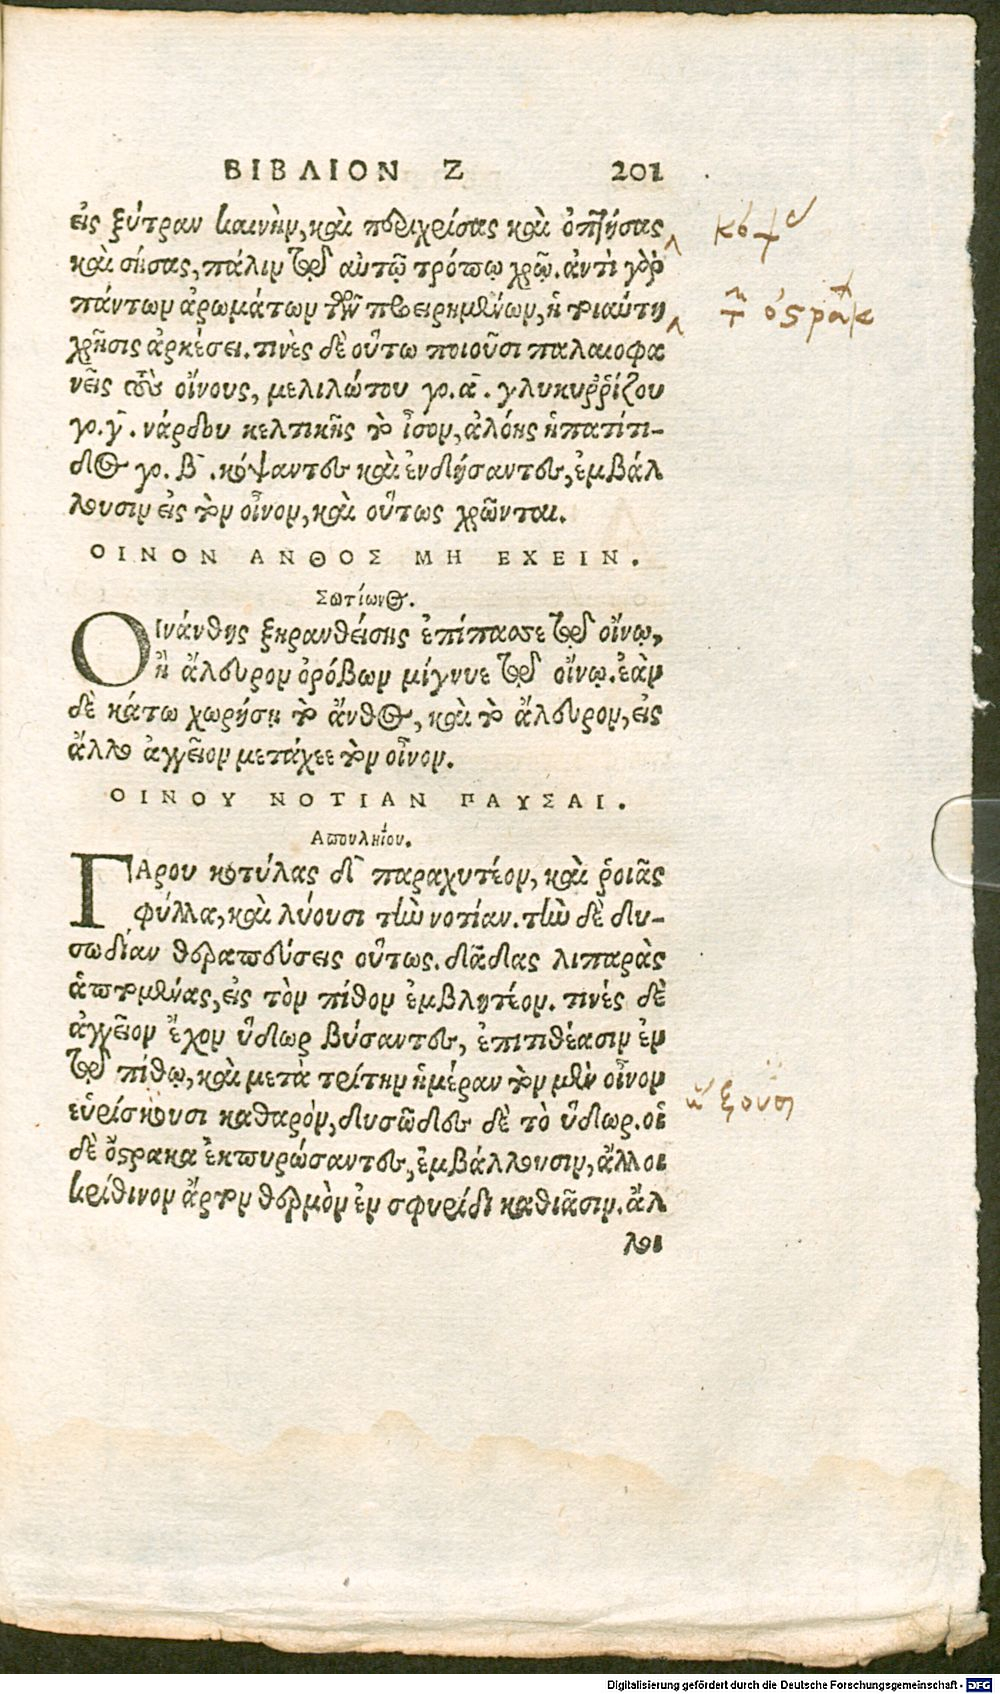 ΒΙΒΛΙΟΝ Ζ 201
εἰς ξύτραν καινὴν, καὶ περιχρίσας καὶ ὀπτήσας
καὶ σήσας, πάλιν τῷ αὐτῷ τρόπῳ χρῶ. ἀντὶ γὰρ
πάντων ἀρωμάτων τῶν προειρημένων, ἡ τοιαύτη
χρῆσις ἀρκέσει. τινὲς δὲ οὕτω ποιοῦσι παλαιοφα
νεῖς τοὺς οἴνους, μελιλώτου γο. α . γλυκυῤῥίζου
γο. γ . νάρδου κελτικῆς τὸ ἶσον, ἀλόης ἡπατίτι-
δος γο. β . κόψαντες καὶ ἐνδήσαντες, ἐμβάλ
λουσιν εἰς τὸν οἶνον, καὶ οὕτως χρῶνται.
ΟΙΝΟΝ ΑΝΘΟΣ ΜΗ ΕΧΕΙΝ.
Σωτίωνος.
ΟΙνάνθης ξηρανθείσης ἐπίπασσε τῷ οἴνῳ,
ἢ ἄλευρον ὀρόβων μίγνυε τῷ οἴνῳ. ἐὰν
δὲ κάτω χωρήσῃ τὸ ἄνθος, καὶ τὸ ἄλευρον, εἰς
ἄλλο ἀγγεῖον μετάχεε τὸν οἶνον.
ΟΙΝΟΥ ΝΟΤΙΑΝ ΠΑΥΣΑΙ.
Απουληΐου.
ΓΑρου κοτύλας δ παραχυτέον, καὶ ῥοιᾶς
φύλλα, καὶ λύουσι τὴν νοτίαν. τὴν δὲ δυ-
σωδίαν θεραπεύσεις οὕτως. δᾷδας λιπαρὰς
ἁπτομένας, εἰς τὸν πίθον ἐμβλητέον. τινὲς δὲ
ἀγγεῖον ἔχον ὕδωρ βύσαντες, ἐπιτιθέασιν ἐν
τῷ πίθῳ, καὶ μετὰ τρίτην ἡμέραν τὸν μὲν οἶνον
εὑρίσκουσι καθαρὸν, δυσῶδες δὲ τὸ ὕδωρ. οἱ
δὲ ὄστρακα ἐκπυρώσαντες, ἐμβάλλουσιν, ἄλλοι
κρίθινον ἄρτον θερμὸν ἐν σφυρίδι καθιᾶσιν. ἄλ
λοι